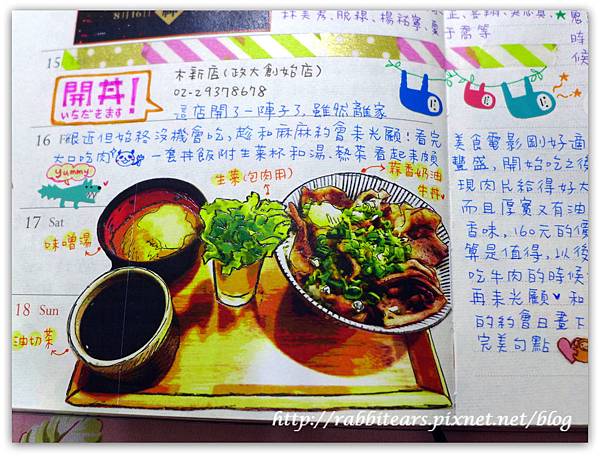 8月16日
林美秀、脫線、楊祐寧、夏
于喬等
時
候
15
開丼!
いちだきます!
木新店(政大創始店)
02-29378678
這店開了一陣子了,雖然離家
16 F很近但始終沒機會吃,趁和麻麻約會來光顧!看完
大口吃肉 一套丼飯附生菜杯和湯、熱茶 看起來頗
Yummy
生菜(包肉用)
蒜香奶油
牛丼
17 Sat
味噌湯
18 Sun
油切茶
美食電影剛好適
豐盛,開始吃之後
現肉片給得好大
而且厚實又有油
香味,160元的價
算是值得,以後
吃牛肉的時候
再來光顧♥和
的約會日畫下
完美句點
http://rabbitears.pixnet.net/blog